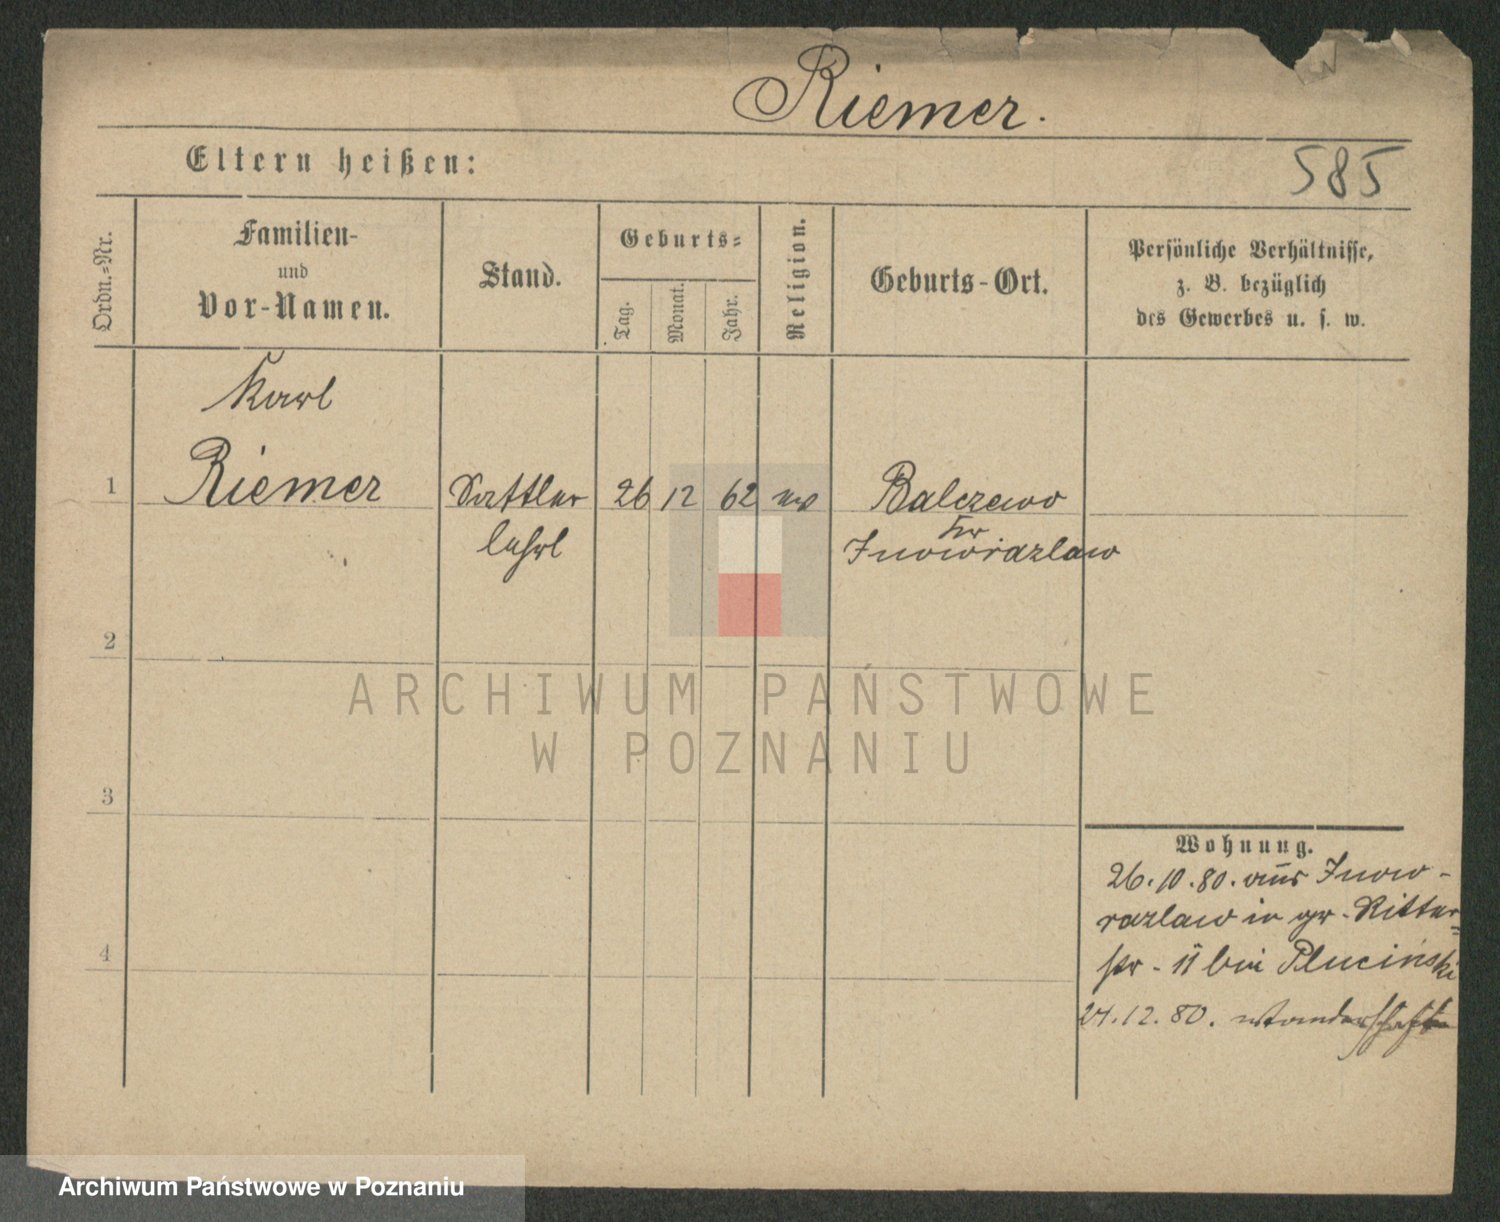 Riemer.
585
Eltern heißen:
Ordn.-Nr.
Familien-
und
Vor-Namen.
Stand.
Geburts-
Tag.
Monat.
Jahr.
Religion.
Geburts-Ort.
Persönliche Verhältnisse,
z. B. bezüglich
des Gewerbes u. s. w.
Karl
1 Riemer Sattler 26 12 62 ev Balczewo
lehrl Kr
Inowrazlaw
2
3
4
Wohnung.
26.10.80. aus Inow-
razlaw in gr. Ritter-
str. 11 bei Pluciński
21.12.80. Wanderschaft
ARCHIWUM PAŃSTWOWE
W POZNANIU
Archiwum Państwowe w Poznaniu